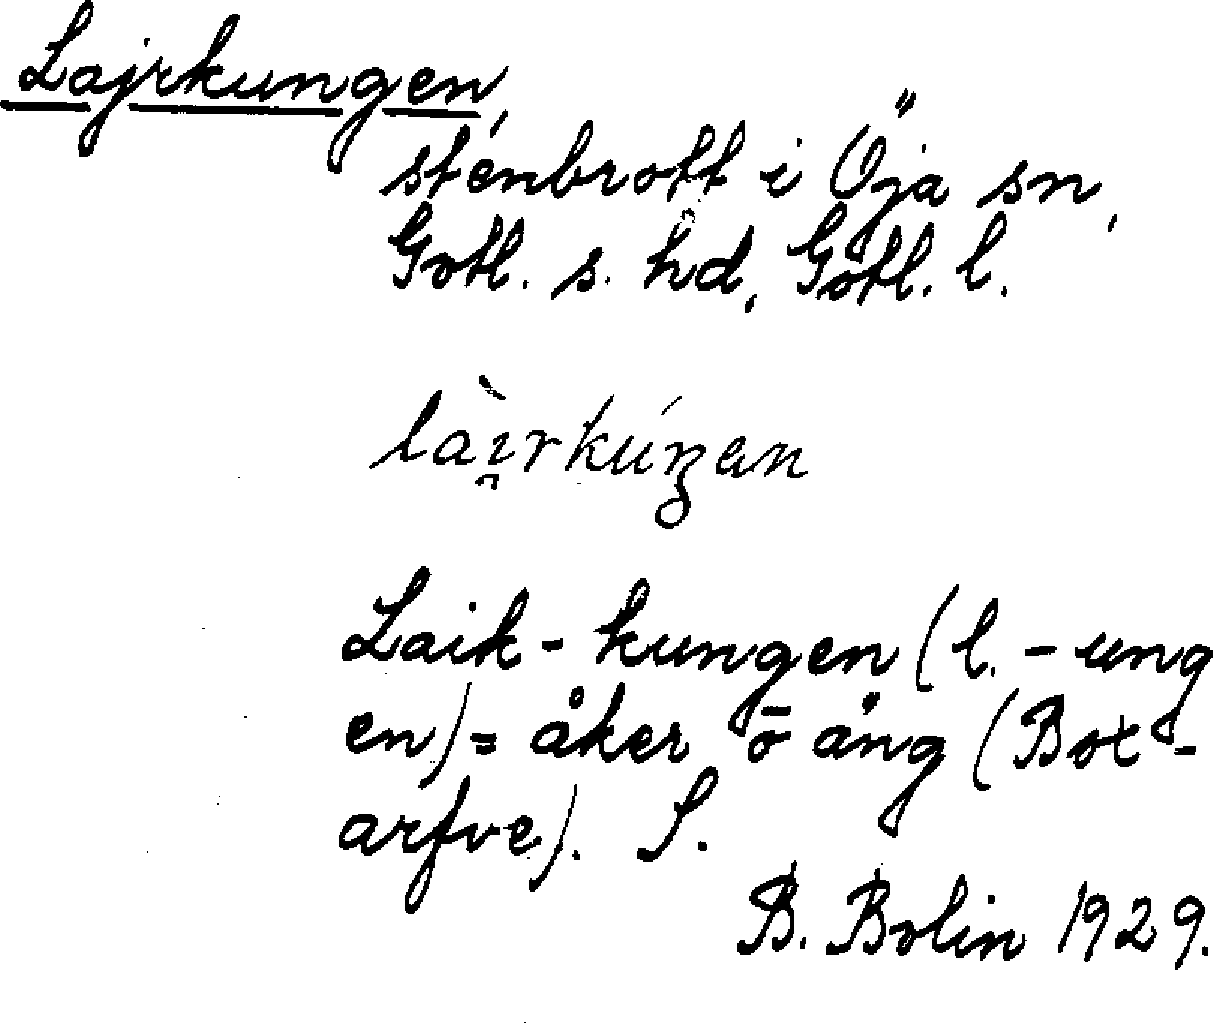 Lajrkungen,
stenbrott i Öja sn,
Gotl. s. hd, Gotl. l.
lài̯rkúŋen
Laik-kungen (l. -ung
en) = åker o äng (Box-
arfve). S.
B. Bolin 1929.